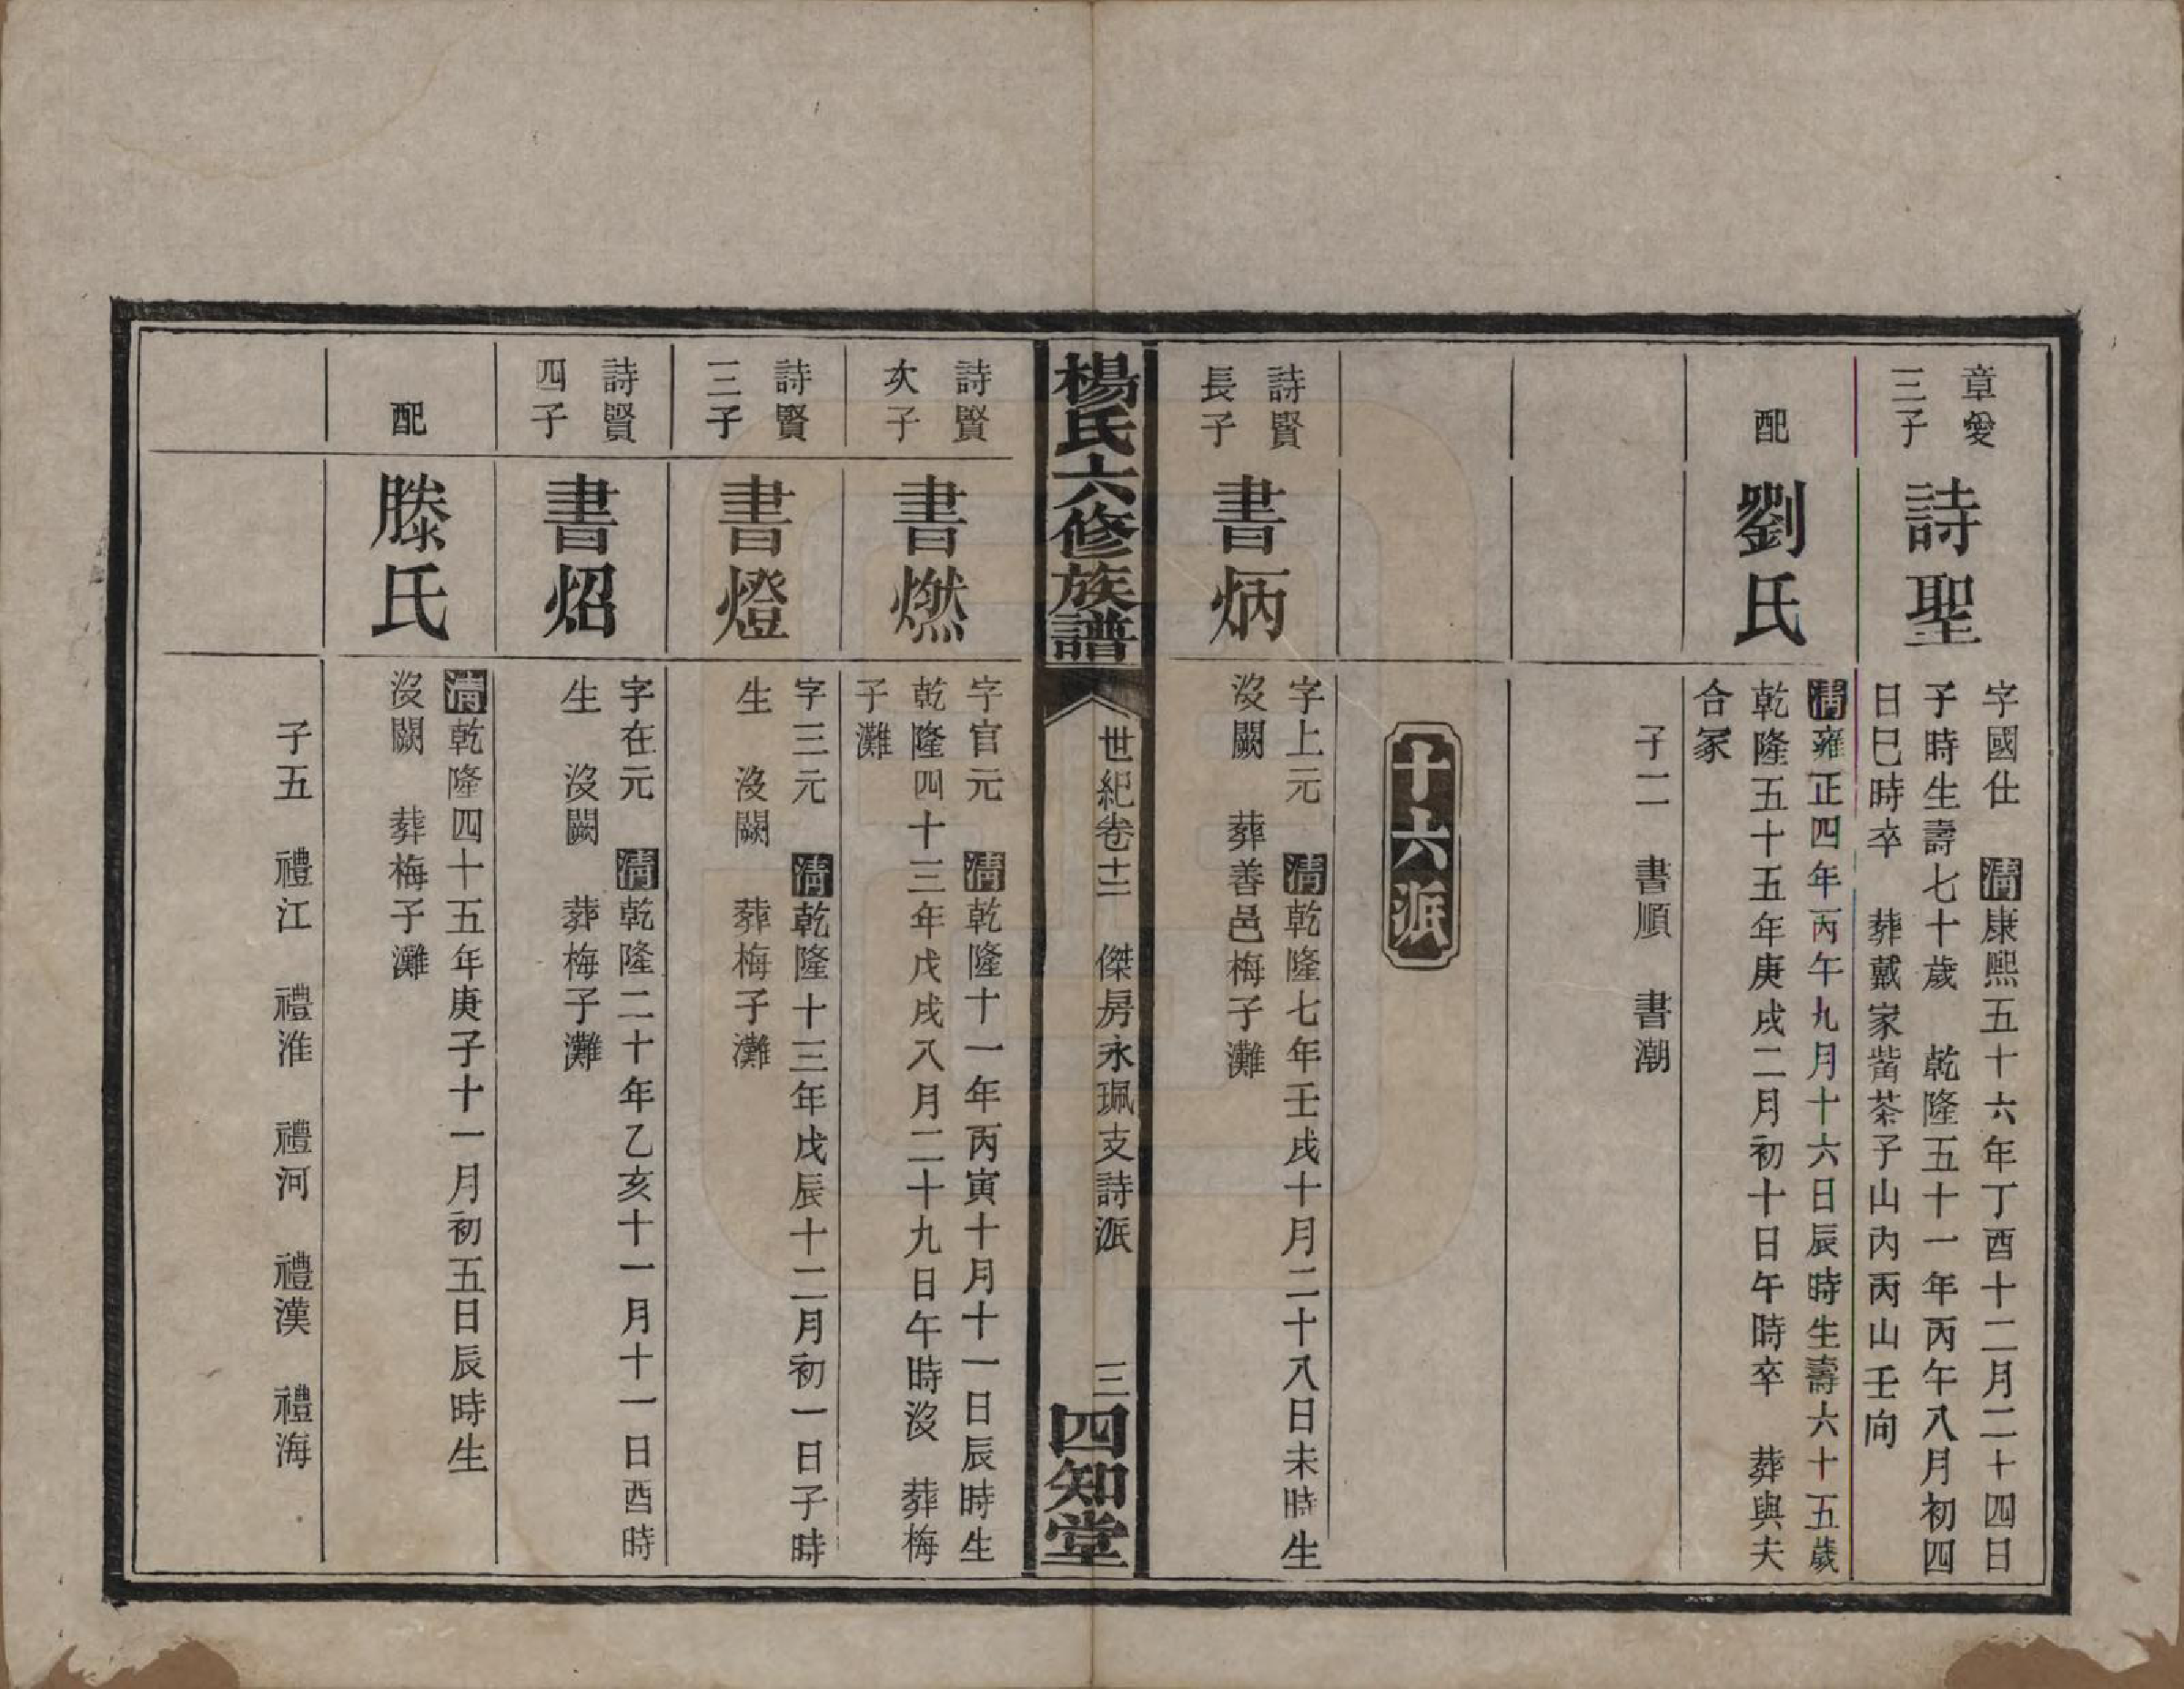 章愛
三子
詩聖
字國仕　清康熙五十六年丁酉十二月二十四日
子時生壽七十歲　乾隆五十一年丙午八月初四
日巳時卒　葬戴家觜茶子山內丙山壬向
配
劉氏
清雍正四年丙午九月十六日辰時生壽六十五歲
乾隆五十五年庚戌二月初十日午時卒　葬與夫
合冢
子二　書順　書潮
十六派
詩賢
長子
書炳
字上元　清乾隆七年壬戌十月二十八日未時生
沒闕　葬善邑梅子灘
楊氏六修族譜
世紀卷十二　傑房永珮支詩派　三
四知堂
詩賢
次子
書燃
字官元　清乾隆十一年丙寅十月十一日辰時生
乾隆四十三年戊戌八月二十九日午時沒　葬梅
子灘
詩賢
三子
書燈
字三元　清乾隆十三年戊辰十二月初一日子時
生　沒闕　葬梅子灘
詩賢
四子
書炤
字在元　清乾隆二十年乙亥十一月十一日酉時
生　沒闕　葬梅子灘
配
滕氏
清乾隆四十五年庚子十一月初五日辰時生
沒闕　葬梅子灘
子五　禮江　禮淮　禮河　禮漢　禮海